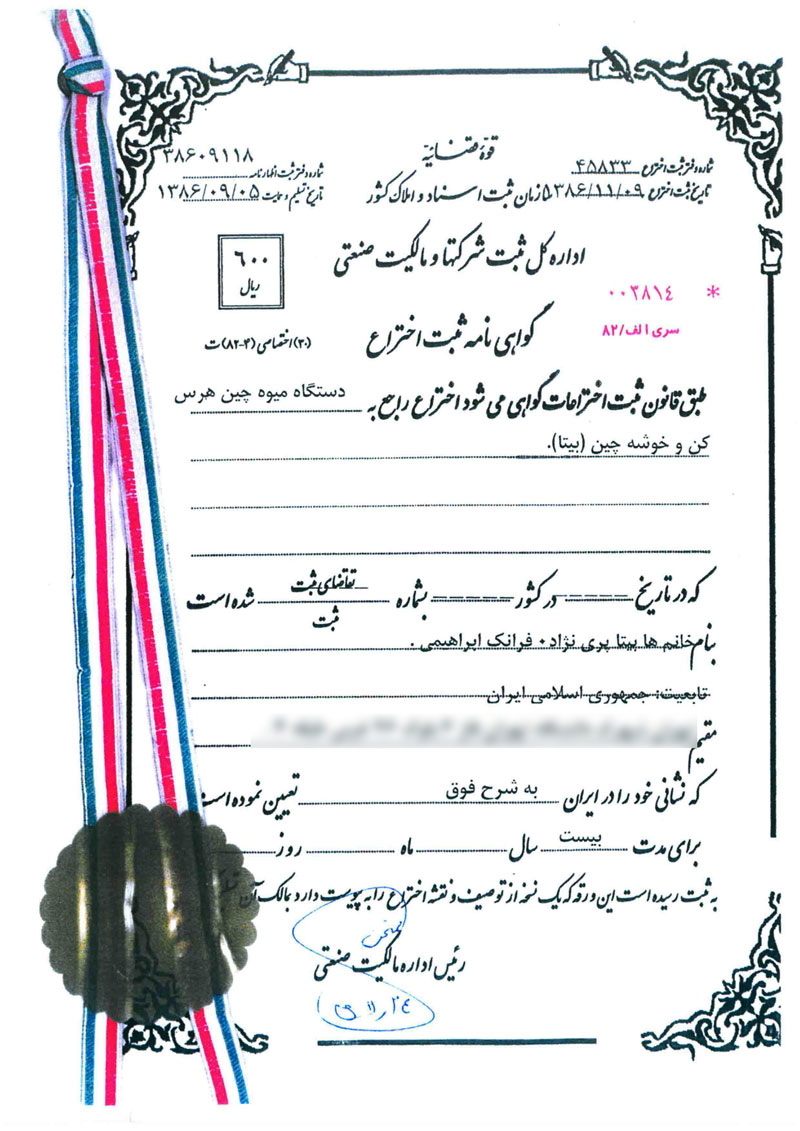 قوه قضائیه
شماره دفتر ثبت اختراع ۴۵۸۳۳
شماره دفتر ثبت اظهارنامه ۳۸۶۰۹۱۱۸
تاریخ ثبت اختراع ۱۳۸۶/۱۱/۰۹
سازمان ثبت اسناد و املاک کشور
تاریخ تسلیم و حمایت ۱۳۸۶/۰۹/۰۵
اداره کل ثبت شرکتها و مالکیت صنعتی
۶۰۰
ریال
* ۰۰۳۸۱۴
سری الف/۸۲
گواهی نامه ثبت اختراع
(۳۰) اختصاصی (۴-۸۲) ت
طبق قانون ثبت اختراعات گواهی می شود اختراع راجع به دستگاه میوه چین هرس
کن و خوشه چین (بیتا).
که در تاریخ ===== در کشور ====== بشماره تقاضای ثبت شده است
ثبت
بنام خانم ها بیتا پری نژاد۰ فرانک ابراهیمی .
تابعیت: جمهوری اسلامی ایران
مقیم
که نشانی خود را در ایران به شرح فوق تعیین نموده است
برای مدت بیست سال ماه روز
به ثبت رسیده است این ورقه که یک نسخه از توصیف و نقشه اختراع را به پیوست دارد بمالک آن
رئیس اداره مالکیت صنعتی